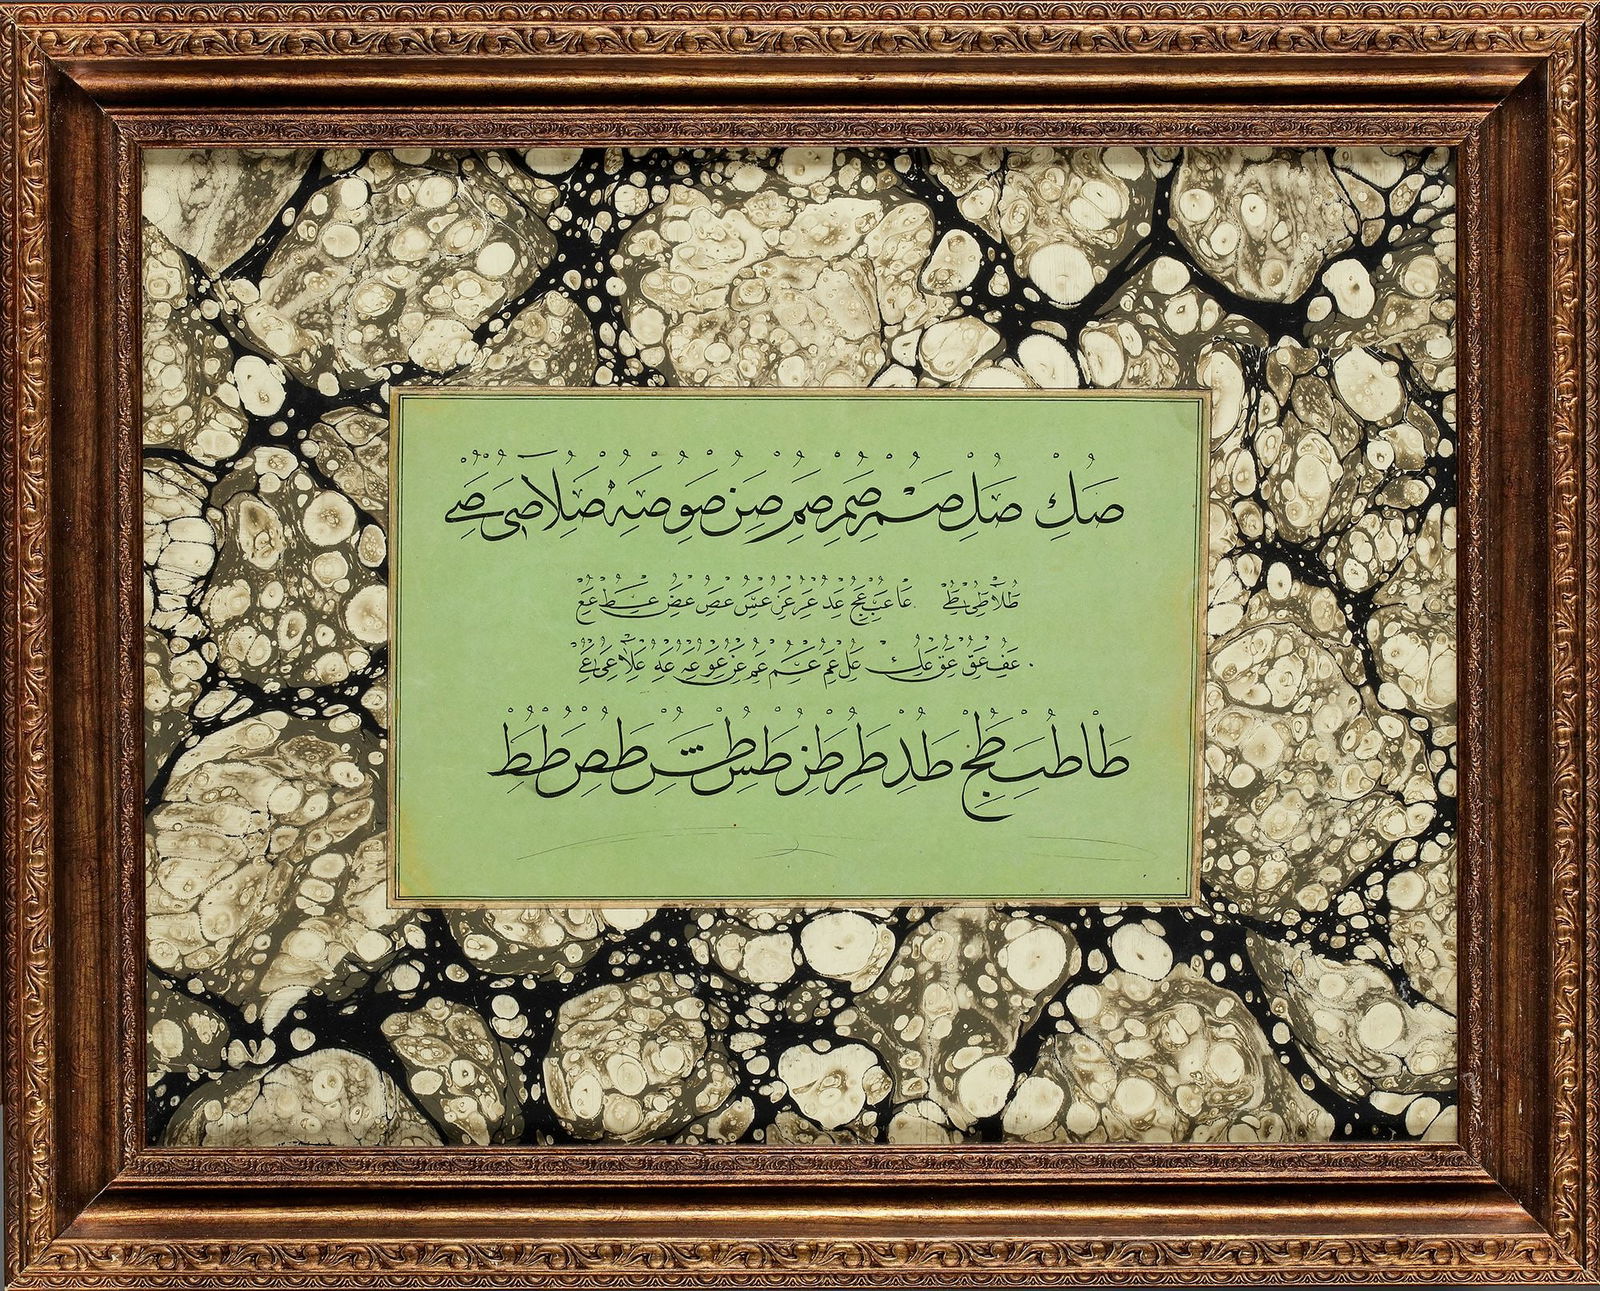 صك صل صم صمر صمر صن صو صه صلا صى صے
طلا طى طے عا عب عج عد عر عز عس عص عض عط عع
عف عق عق عك عل عم عم عم عن عو عه عه علا عى عے
طا طب طج طد طر طز طس طش طص طط